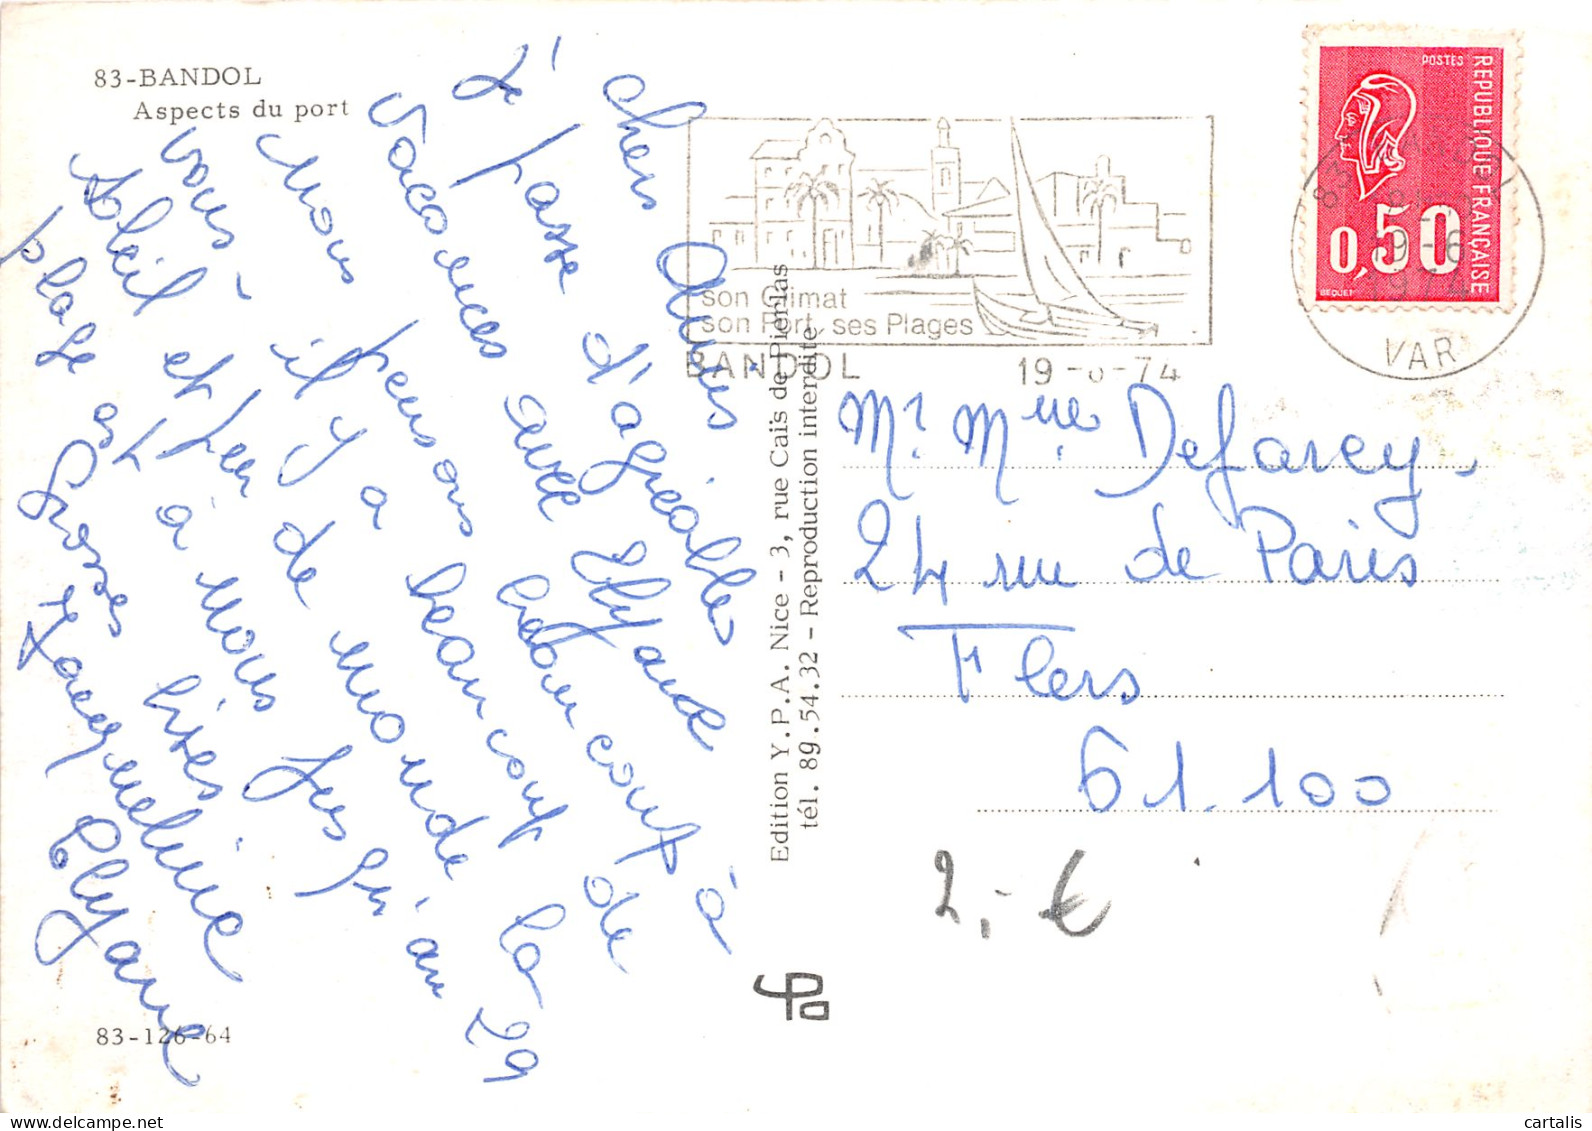 83-BANDOL
Aspects du port
chers Amis
Je passe d'agréables
vacances avec Elyane
Nous pensons beaucoup à
vous - il y a beaucoup de
soleil et peu de monde la
plage est à nous jusqu'au 29
Grosses bises
Jacqueline
Elyane
83-126-64
Edition Y.P.A. Nice - 3, rue Caïs de Pierlas
tél. 89.54.32 - Reproduction interdite
son Climat
son Port, ses Plages
BANDOL
19-6-74
POSTES
REPUBLIQUE FRANÇAISE
0,50
BEQUET
83
19-6
1974
VAR
Mr. Mme Defarcy
24 rue de Paris
Flers
61.100
2,-€
YPa
cartalis